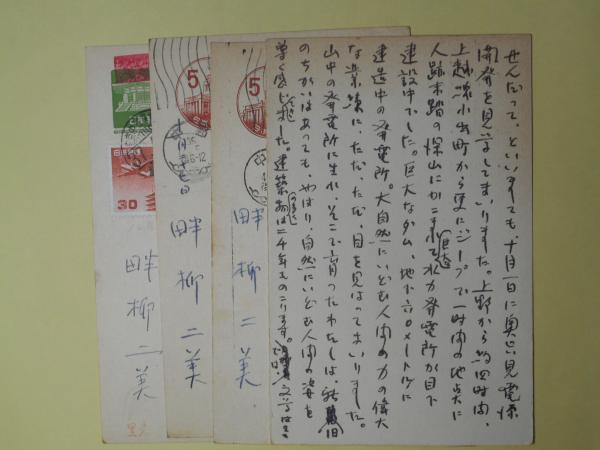 せんだって、といいましても、十月一日に奥只見電源
開発を見学してまいりました。上野から約四時間、
上越線小出町から更にジープで一時間の地点に
人跡未踏の深山にかこまれて水力発電所が目下
巨大な
建設中でした。巨大なダム、地下六〇メートルに
建造中の発電所。大自然にいどむ人間の力の偉大
な業績に、ただ、ただ、目を見はってまいりました。
山中の発電所に生れ、そこで育ったわたしは、新旧
のちがいはあっても、やはり、自然にいどむ人間の姿を
尊く感じました。建築物は二千年ものこります。文学は
畔柳二美
畔柳二美
月 日
畔柳二美
5
5
30